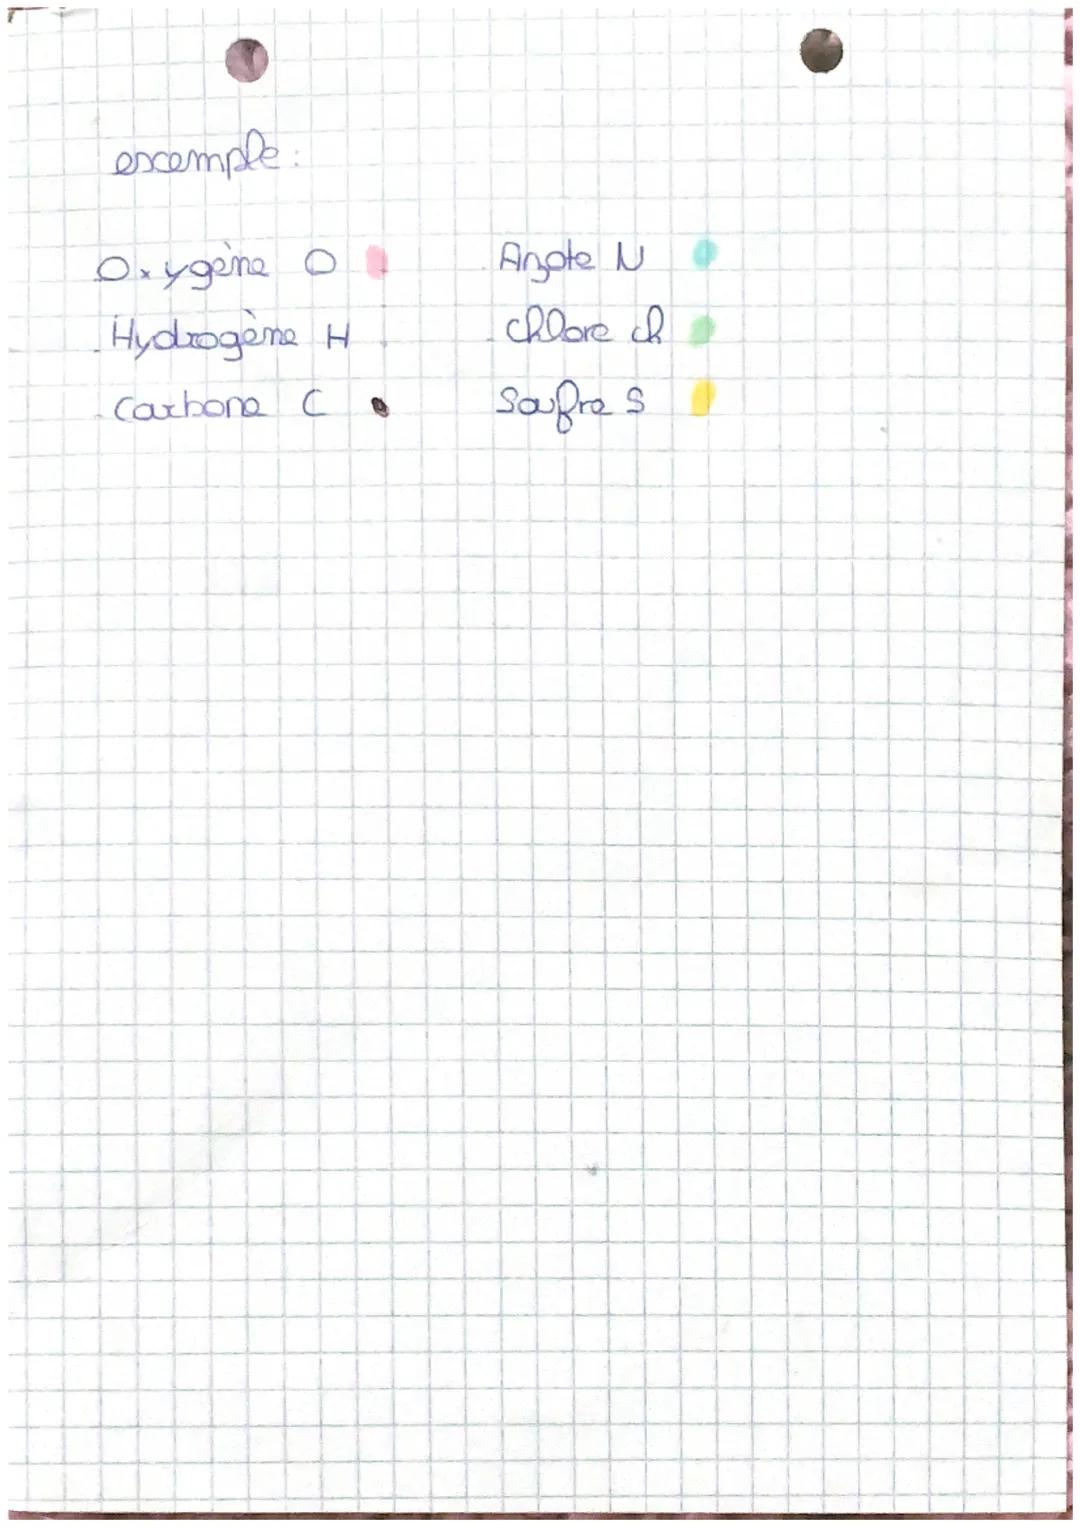 exemple :
Oxygène O Azote N
Hydrogène H Chlore ch
Carbone C Soufre S